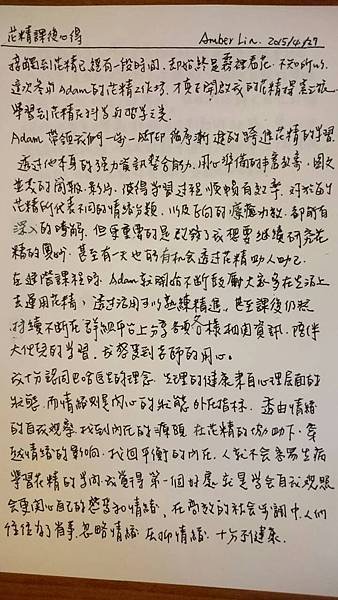 花精課後心得 Amber Lin. 2015/4/27
接觸到花精已經有一段時間,卻始終是霧裡看花,不知所以
這次參加Adam的花精工作坊,才真正開啟我的花精探索之旅
學習到花精在科學與哲學之美
Adam帶領我們一步一腳印循序漸進的踏進花精的學習
透過他本身的強力資訊整合能力,用心準備的抒壓故事,圖文
並茂的簡報、影片,使得學習過程順暢有效率,對於每
花精所代表不同的情緒分類,以及正向的療癒功效都所有
深入的瞭解,但更重要的是啟發了我想要繼續研究花
精的奧妙,甚至有一天也有機會透過花精助人助己
在進階課程時,Adam就開始不斷鼓勵大家多在生活上
去運用花精,透過活用可以熟練精進,甚至課後仍然
持續不斷在群組平台上分享各種各樣相關資訊,陪伴
大伙兒的學習,我感受到老師的用心。
我十分認同巴哈醫生的理念,生理的健康來自心理層面的
狀態,而情緒則是內心的狀態外在指標,透由情緒
的自我觀察,找到內在的癥頭,在花精的協助下,穿
越情緒的影响,找回平衡的內在,人就不會易生病
學習花精的當時,我覺得第一個好處就是學會自我觀照
會更關心自己的感受和情緒,在高效的社會步調中,人們
往往為了省事,忽略情緒,壓抑情緒,十分不健康。